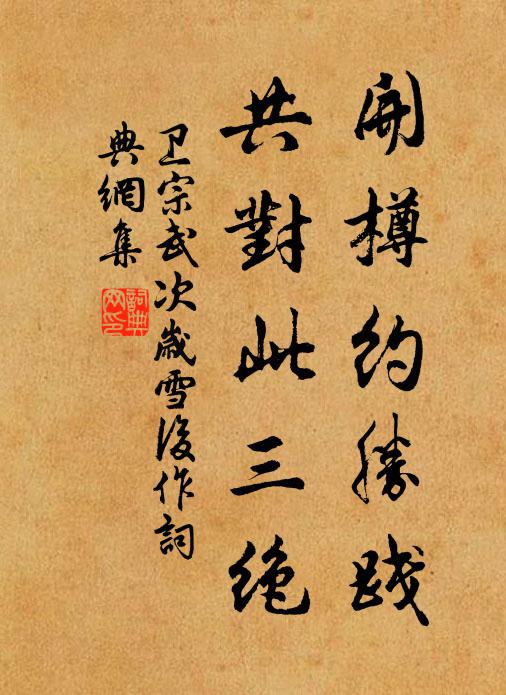 開樽約勝踐
共對此三絶
卫宗武次歲雪後作詞
典網集
詞典
网印